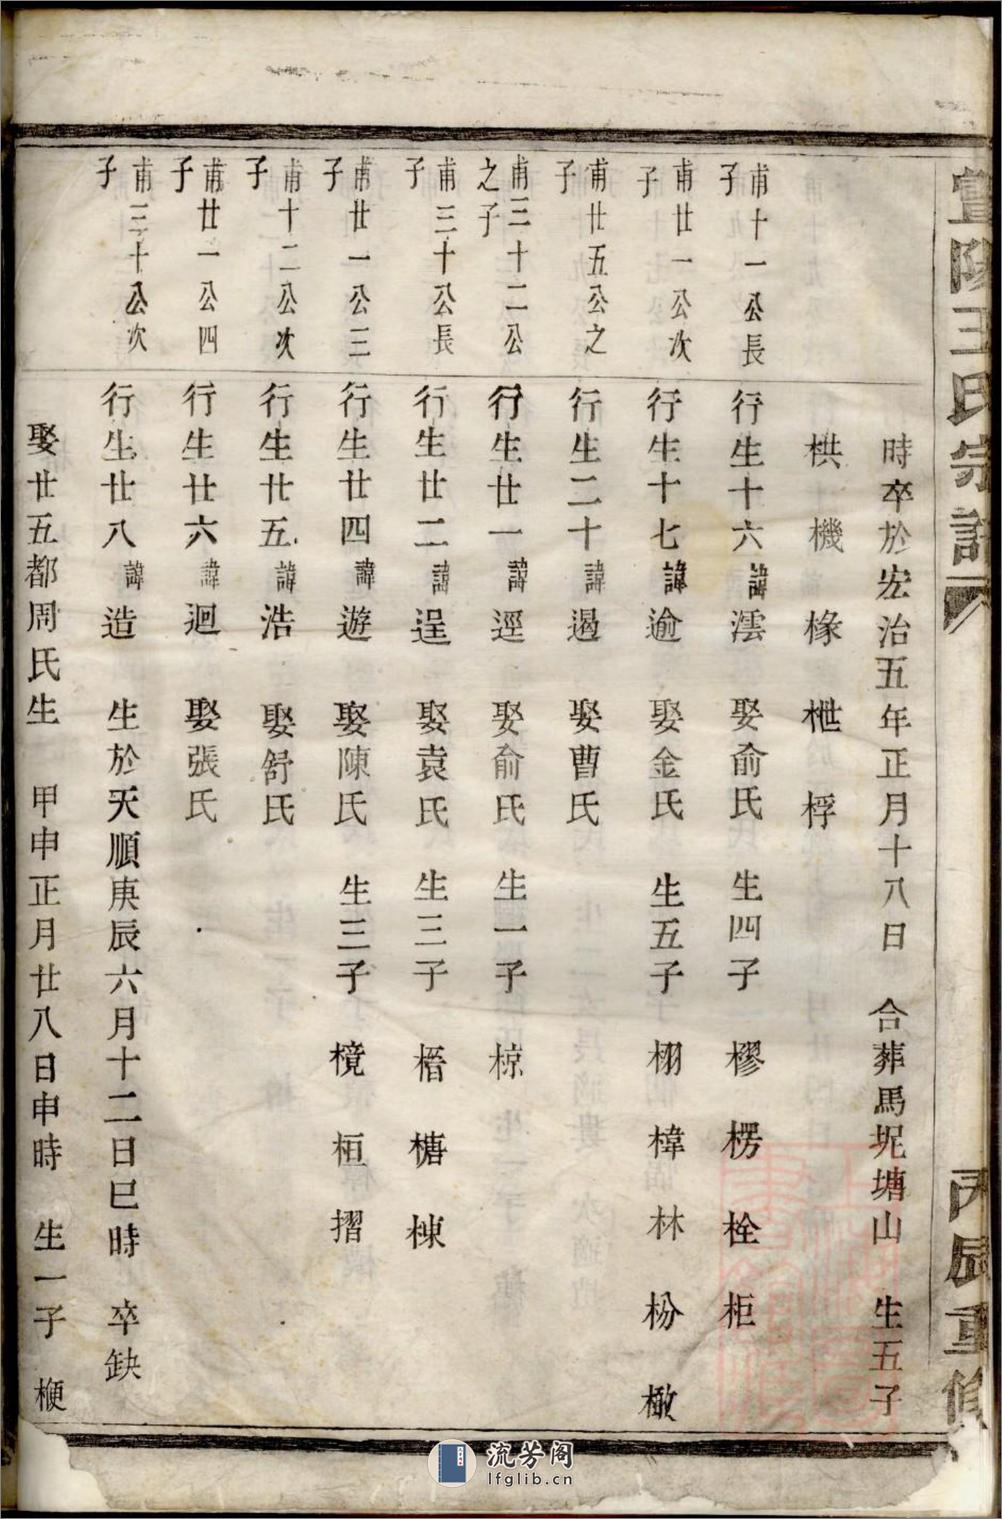 宣陽王氏宗譜
丙辰重修
時卒於宏治五年正月十八日 合葬馬坭塘山 生五子
栱 機 椽 枻 桴
甫十一公長子
行生十六諱澐 娶俞氏 生四子 樛 楞 栓 柜
甫廿一公次子
行生十七諱逾 娶金氏 生五子 栩 樟 林 枌 橄
甫廿五公之子
行生二十諱遏 娶曹氏
甫三十二公之子
行生廿一諱逕 娶俞氏 生一子 椋
甫三十公長子
行生廿二諱逞 娶袁氏 生三子 榗 榶 棟
甫廿一公三子
行生廿四諱遊 娶陳氏 生三子 樈 桓 摺
甫十二公次子
行生廿五諱浩 娶舒氏
甫廿一公四子
行生廿六諱迴 娶張氏
甫三十公次子
行生廿八諱造 生於天順庚辰六月十二日巳時 卒缺
娶廿五都周氏生 甲申正月廿八日申時 生一子 楩
流芳阁
lfglib.cn